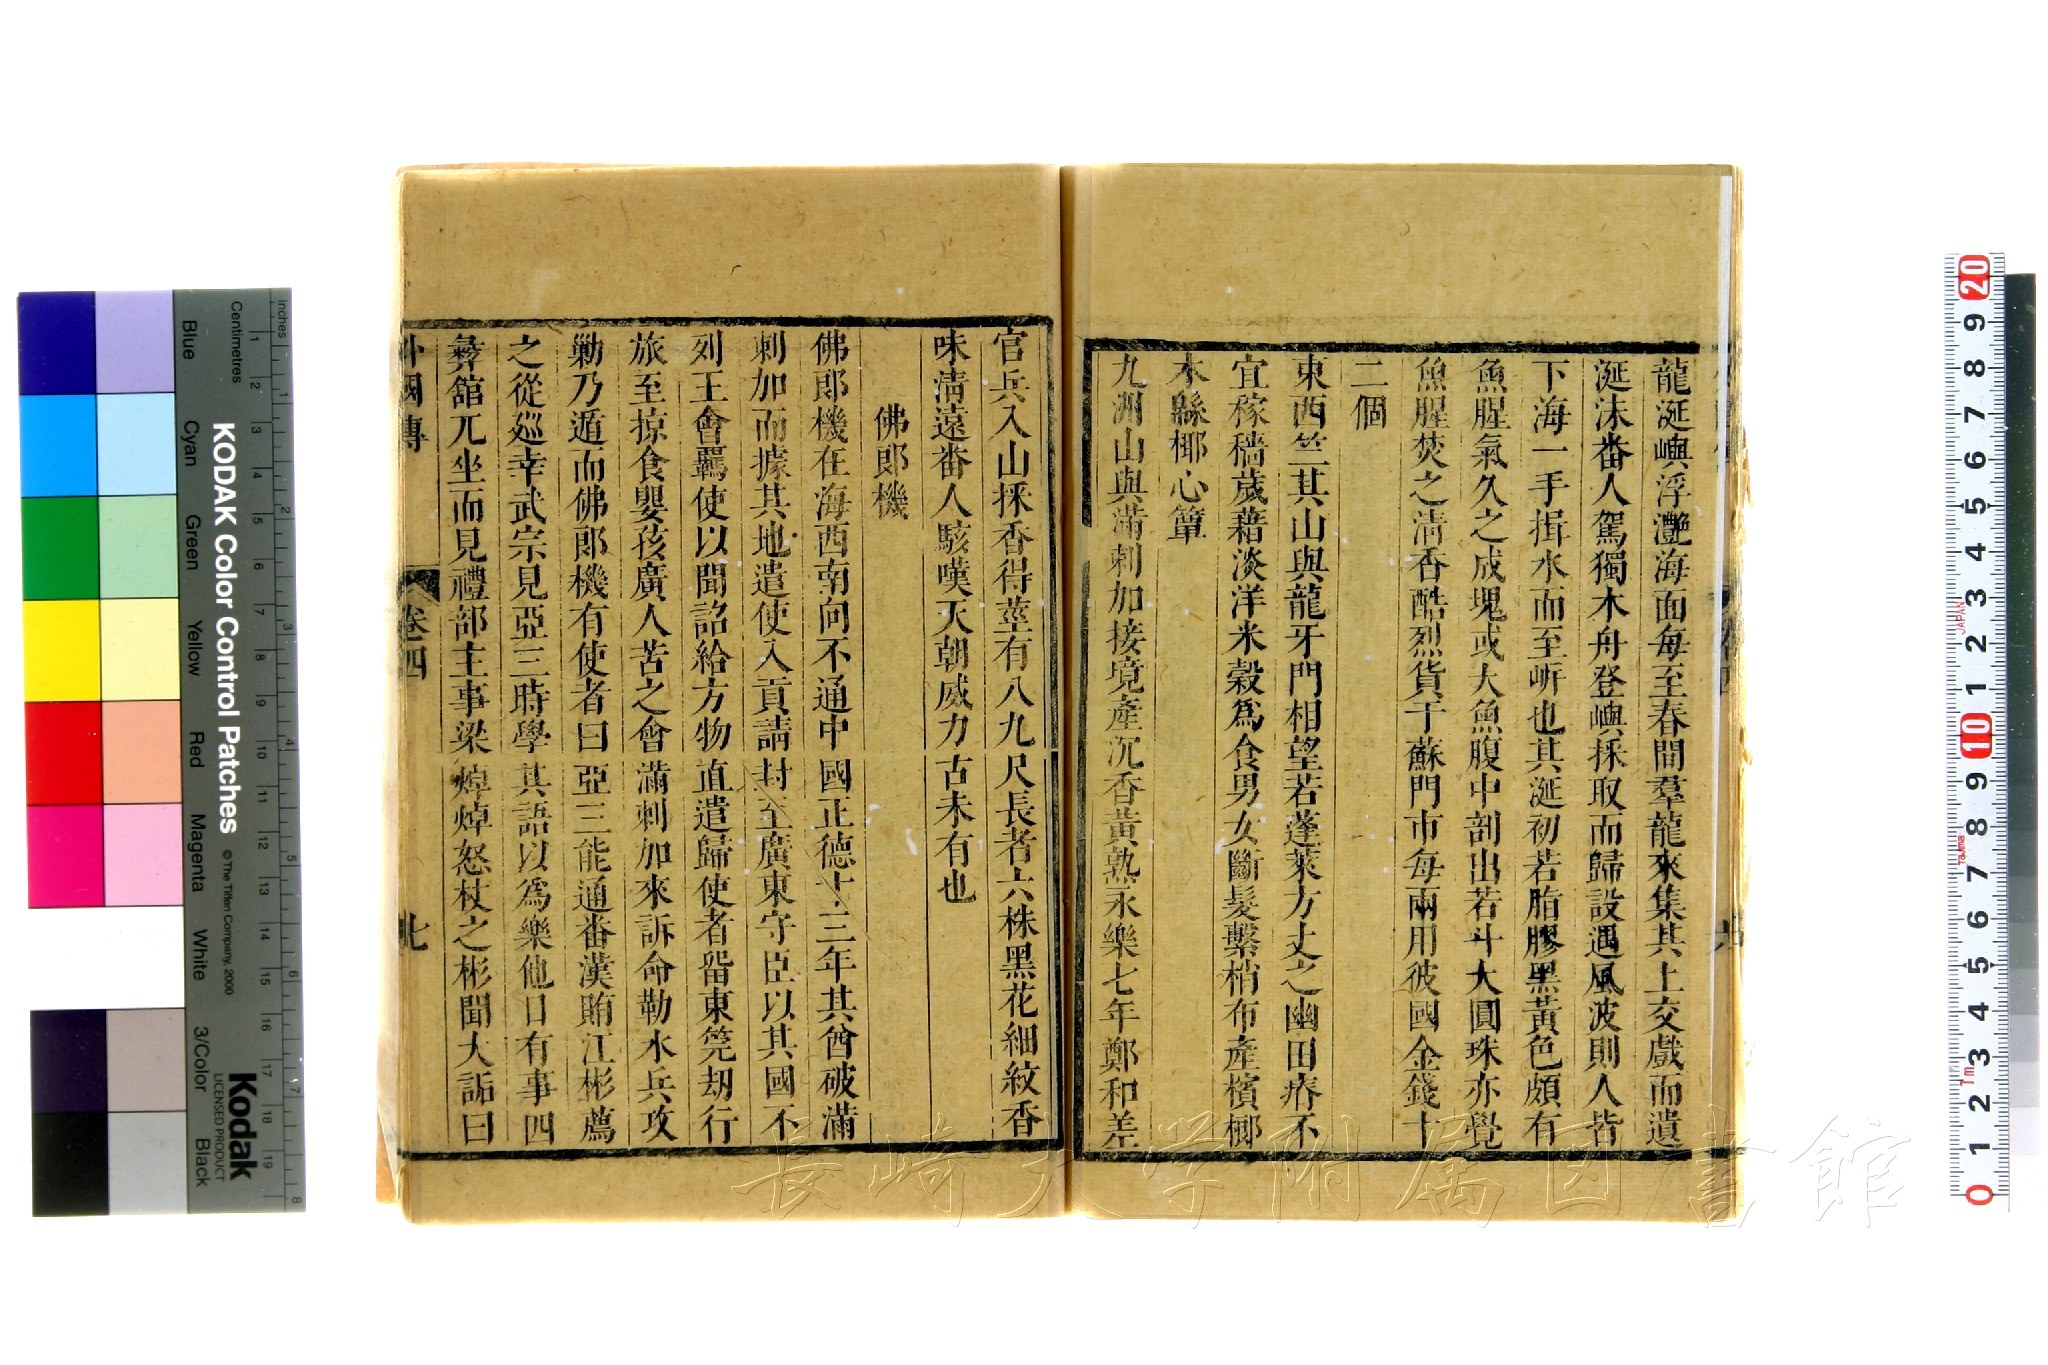 龍涎嶼浮灔海面每至春間羣龍來集其上交戲而遺
涎沫番人駕獨木舟登嶼採取而歸設遇風波則人皆
下海一手揖水而至岍也其涎初若脂膠黑黃色頗有
魚腥氣久之成塊或大魚腹中剖出若斗大圓珠亦覺
魚腥焚之清香酷烈貨于蘇門市每兩用彼國金錢十
二個
東西竺其山與龍牙門相望若蓬萊方丈之幽田瘠不
宜稼穡歲藉淡洋米穀爲食男女斷髮繫梢布產檳榔
木緜椰心簟
九洲山與滿剌加接境產沉香黃熟永樂七年鄭和差
官兵入山採香得莖有八九尺長者六株黑花細紋香
味清遠番人駭嘆天朝威力古未有也
佛郎機
佛郎機在海西南向不通中國正德十三年其酋破滿
剌加而據其地遣使入貢請封至廣東守臣以其國不
列王會羈使以聞詔給方物直遣歸使者畱東筦刼行
旅至掠食嬰孩廣人苦之會滿剌加來訴命勒水兵攻
勦乃遁而佛郎機有使者曰亞三能通番漢賄江彬薦
之從廵幸武宗見亞三時學其語以爲樂他日有事四
彝舘兀坐而見禮部主事梁焯焯怒杖之彬聞大詬曰
外國傳
卷四
七
KODAK Color Control Patches
© The Tiffen Company, 2000
Kodak
LICENSED PRODUCT
Inches
Centimetres
Blue
Cyan
Green
Yellow
Red
Magenta
White
3/Color
Black
長崎大学附属図書館
JAPAN